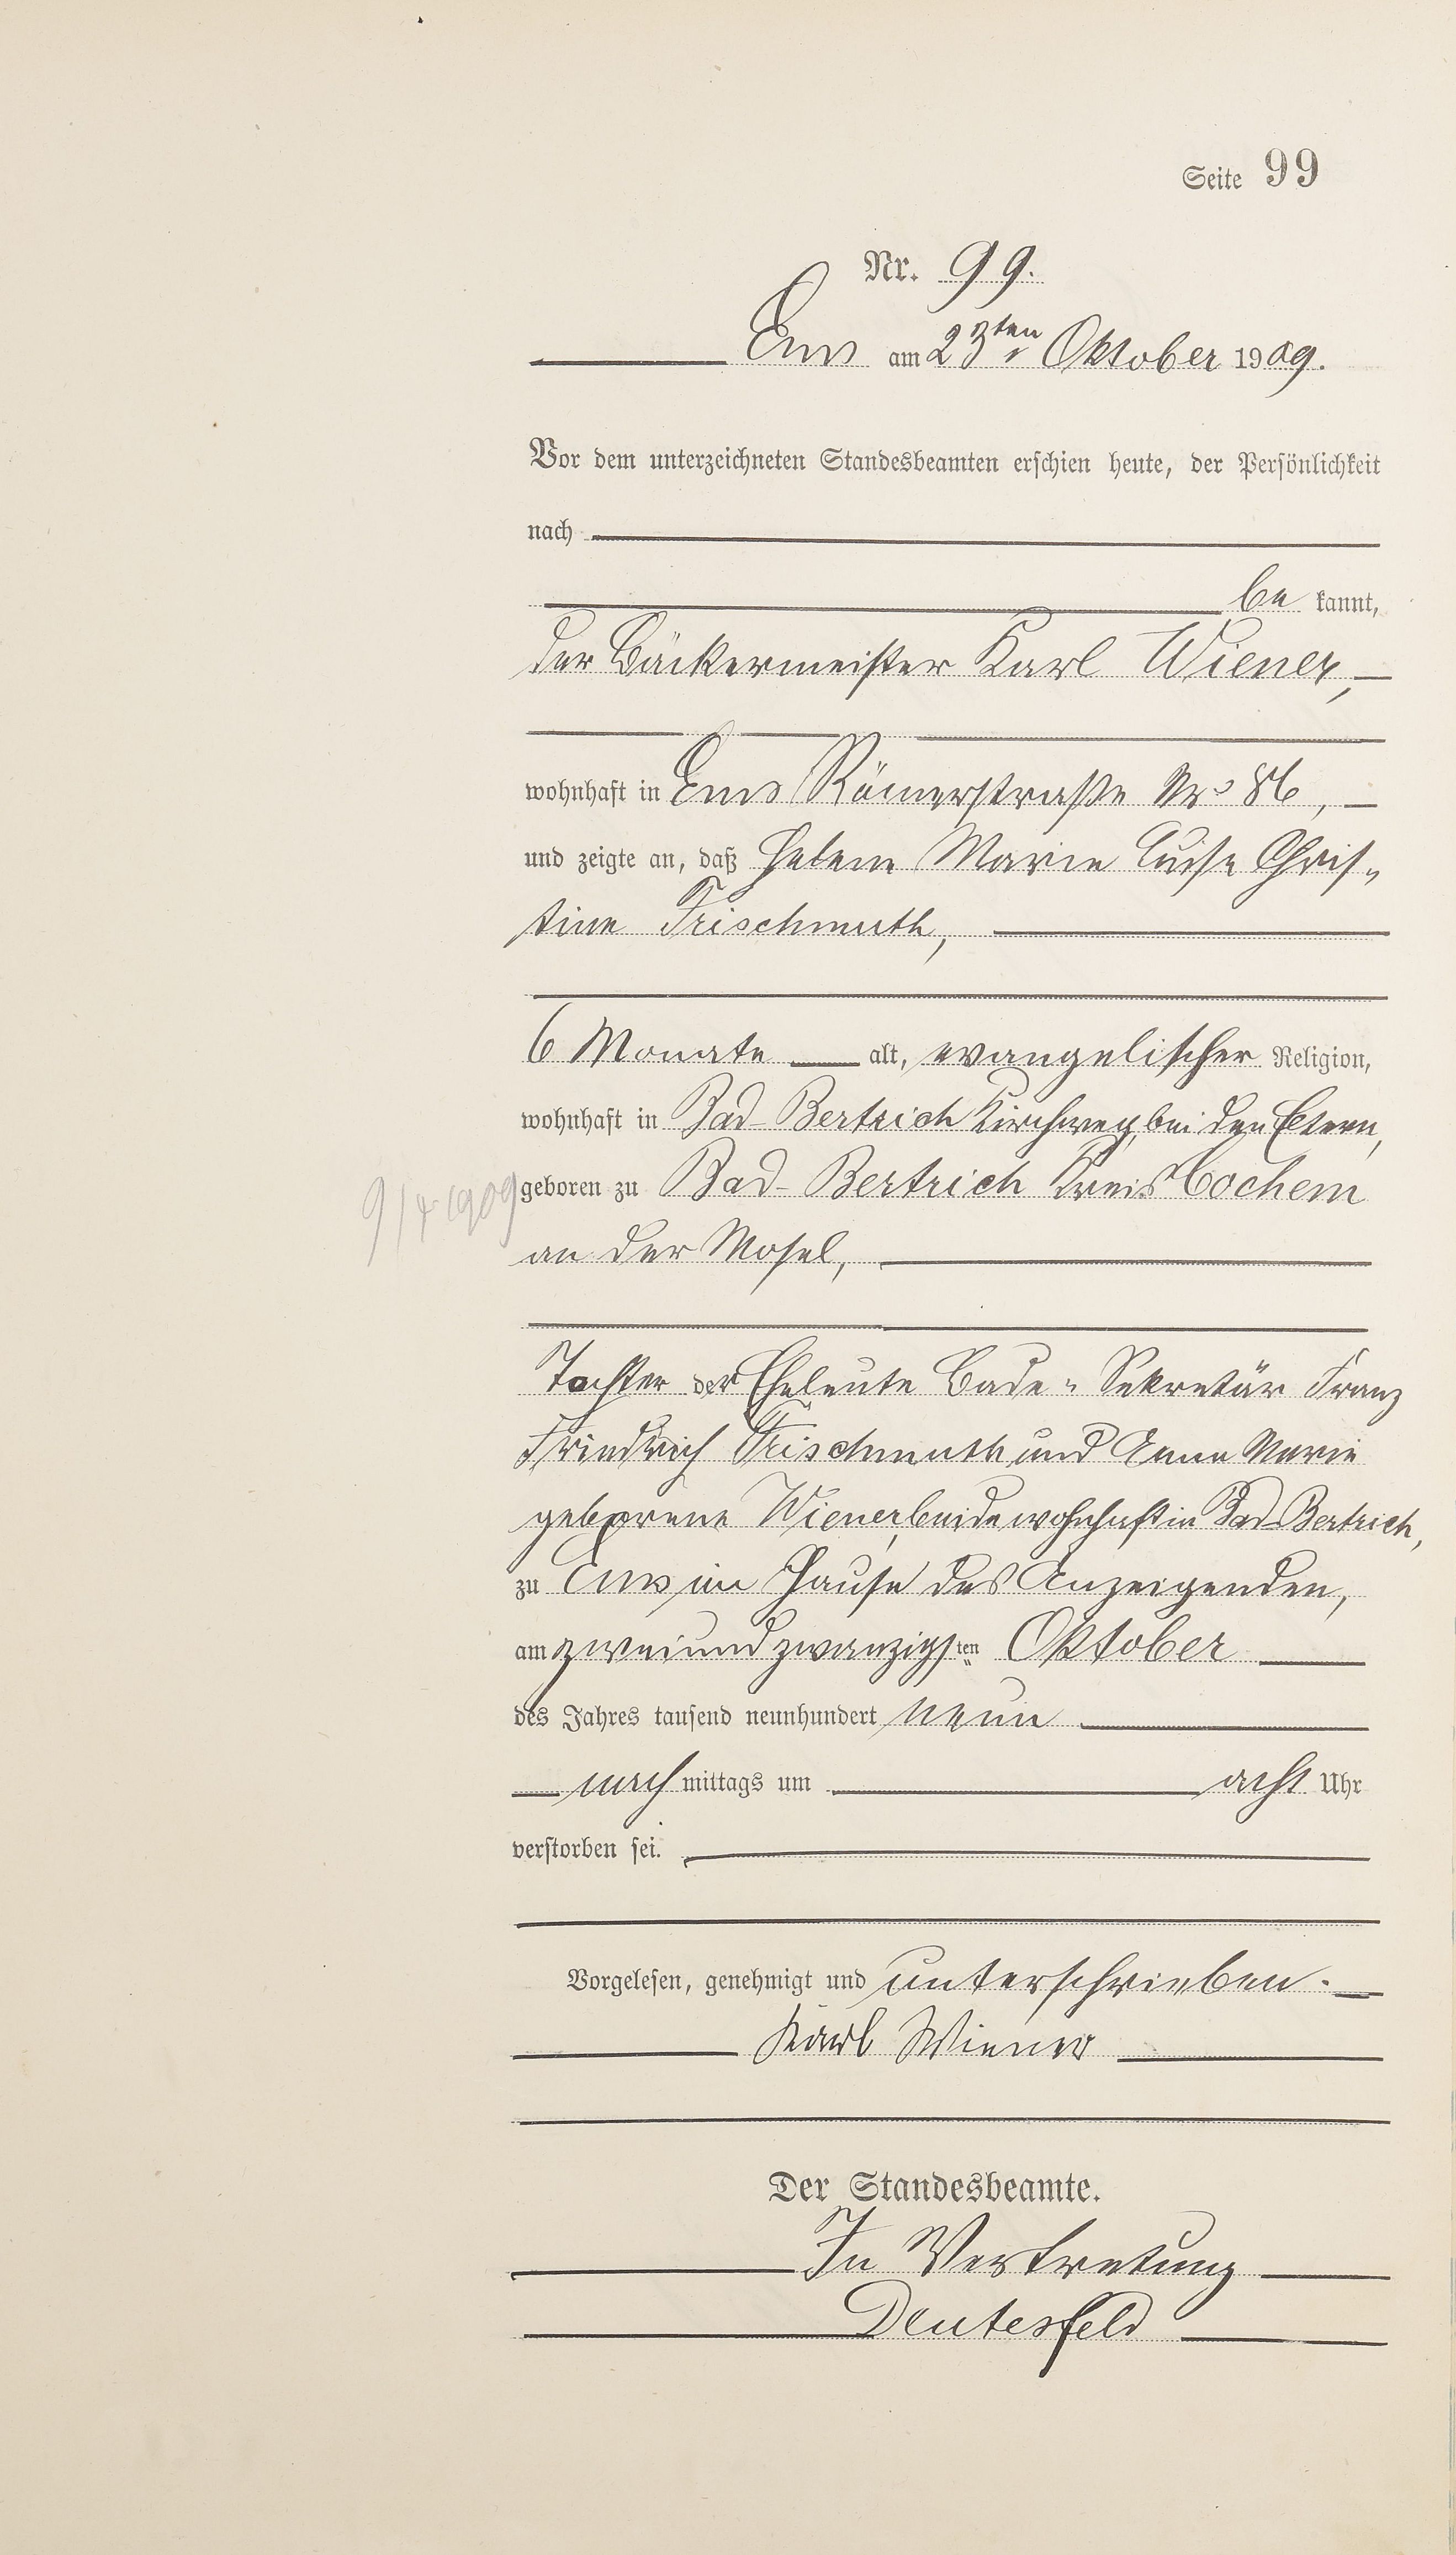 Seite 99
Nr. 99.
Ems am 23ten Oktober 1909.
Vor dem unterzeichneten Standesbeamten erschien heute, der Persönlichkeit
nach
be kannt,
der Bäckermeister Karl Wiener,
wohnhaft in Ems Römerstraße No 86,
und zeigte an, daß Helene Marie Luise Chris-
tine Frischmuth,
6 Monate alt, evangelischer Religion,
wohnhaft in Bad-Bertrich Kirchweg, bei den Eltern,
geboren zu Bad-Bertrich Kreis Cochem
9/4 1909
an der Mosel,
Tochter der Eheleute Bade-Sekretär Franz
Friedrich Frischmuth und Anna Marie
geborene Wiener, beide wohnhaft in Bad-Bertrich,
zu Ems im Hause des Anzeigenden,
am zweiundzwanzigsten Oktober
des Jahres tausend neunhundert neun
nach mittags um acht Uhr
verstorben sei.
Vorgelesen, genehmigt und unterschrieben.
Karl Wiener
Der Standesbeamte.
In Vertretung
Deutesfeld